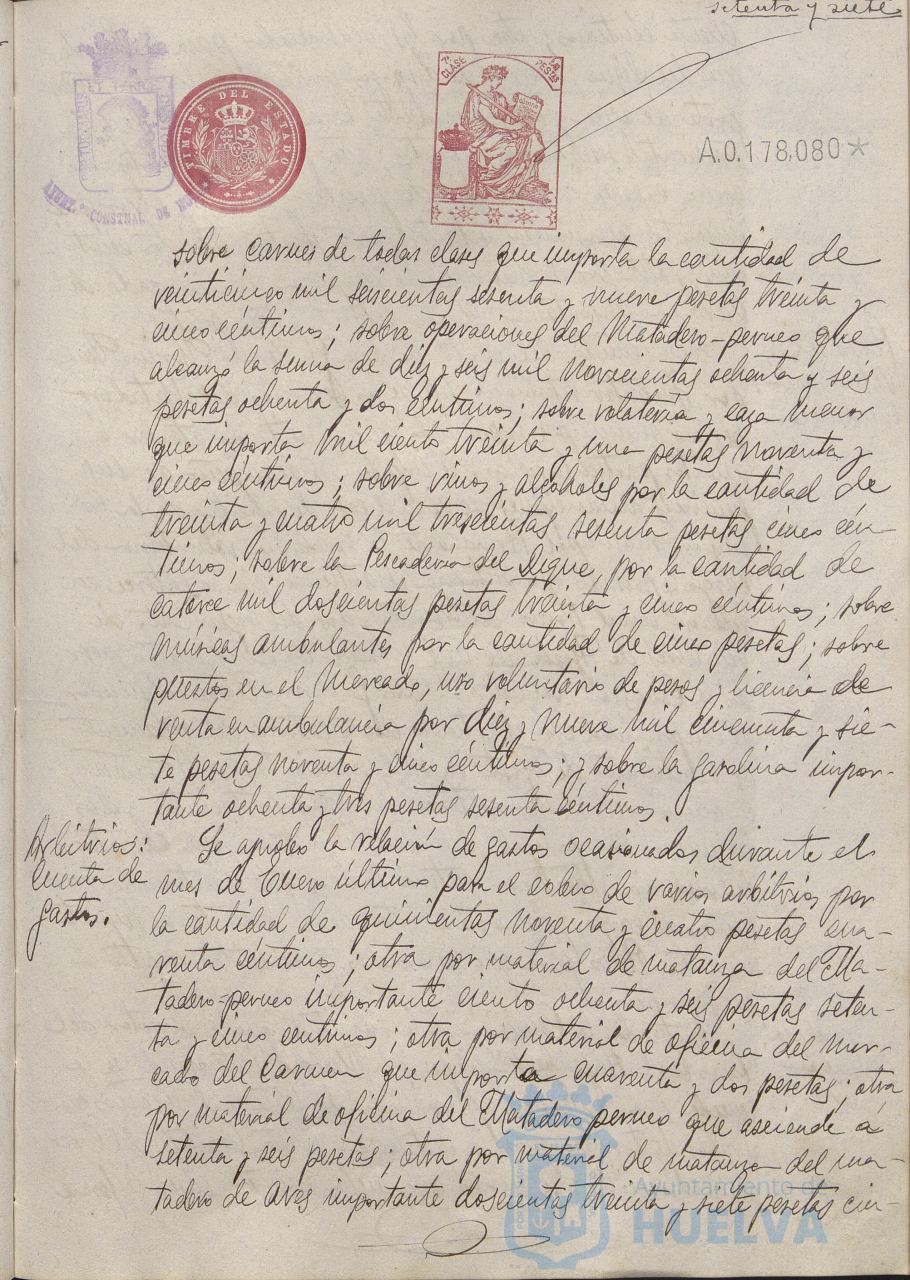 setenta y siete
ET TERRÆ
AYUNT.º CONSTNAL. DE HU
TIMBRE DEL ESTADO
7ª CLASE
PESETAS
A.0.178,080*
sobre carnes de todas clases que importa la cantidad de
veinticinco mil seiscientas sesenta y nueve pesetas treinta y
cinco céntimos; sobre operaciones del Matadero-perneo que
alcanzó la suma de diez y seis mil novecientas ochenta y seis
pesetas ochenta y dos céntimos; sobre volatería y caza menor
que importa mil ciento treinta y una pesetas noventa y
cinco céntimos; sobre vinos y alcoholes por la cantidad de
treinta y cuatro mil trescientas sesenta pesetas cinco cén-
timos; sobre la Pescadería del Dique, por la cantidad de
catorce mil doscientas pesetas treinta y cinco céntimos; sobre
músicas ambulantes por la cantidad de cinco pesetas; sobre
puestos en el Mercado, uso voluntario de pesos y licencia de
venta en ambulancia por diez y nueve mil cincuenta y sie-
te pesetas noventa y cinco céntimos; y sobre la gasolina impor-
tante ochenta y tres pesetas sesenta céntimos.
Arbitrios:
Cuenta de
gastos.
Se aprobó la relación de gastos ocasionados durante el
mes de Enero último para el cobro de varios arbitrios por
la cantidad de quinientas noventa y cuatro pesetas cua-
renta céntimos; otra por material de matanza del Ma-
tadero-perneo importante ciento ochenta y seis pesetas seten-
ta y cinco céntimos; otra por material de oficina del Mer-
cado del Carmen que importa cuarenta y dos pesetas; otra
por material de oficina del Matadero perneo que asciende á
setenta y seis pesetas; otra por material de matanza del ma-
tadero de aves importante doscientas treinta y siete pesetas cin-
Ayuntamiento de
HUELVA